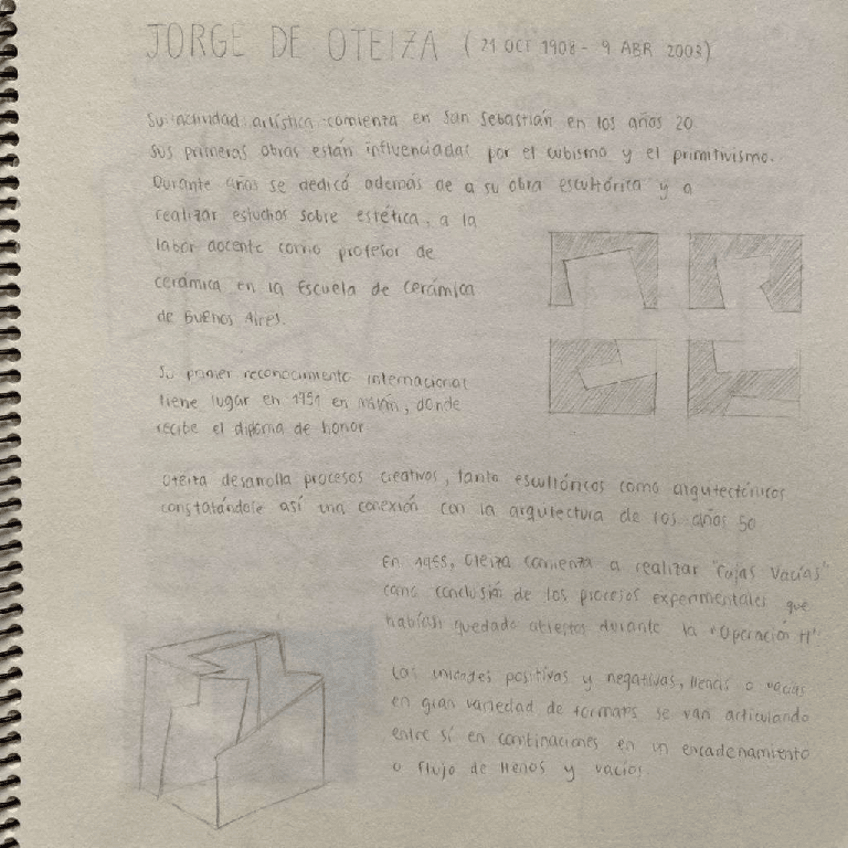 JORGE DE OTEIZA (21 OCT 1908 - 9 ABR 2003)
Su actividad artística comienza en San Sebastián en los años 20
sus primeras obras están influenciadas por el cubismo y el primitivismo.
Durante años se dedicó además de a su obra escultórica y a
realizar estudios sobre estética, a la
labor docente como profesor de
cerámica en la Escuela de Cerámica
de Buenos Aires.
Su primer reconocimiento internacional
tiene lugar en 1951 en Milán, donde
recibe el diploma de honor
Oteiza desarrolla procesos creativos, tanto escultóricos como arquitectónicos
constatándose así una conexión con la arquitectura de los años 50
En 1955, Oteiza comienza a realizar "Cajas Vacías"
como conclusión de los procesos experimentales que
habían quedado abiertos durante la "Operación H"
Las unidades positivas y negativas, llenas o vacías
en gran variedad de formatos se van articulando
entre sí en combinaciones en un encadenamiento
o flujo de llenos y vacíos